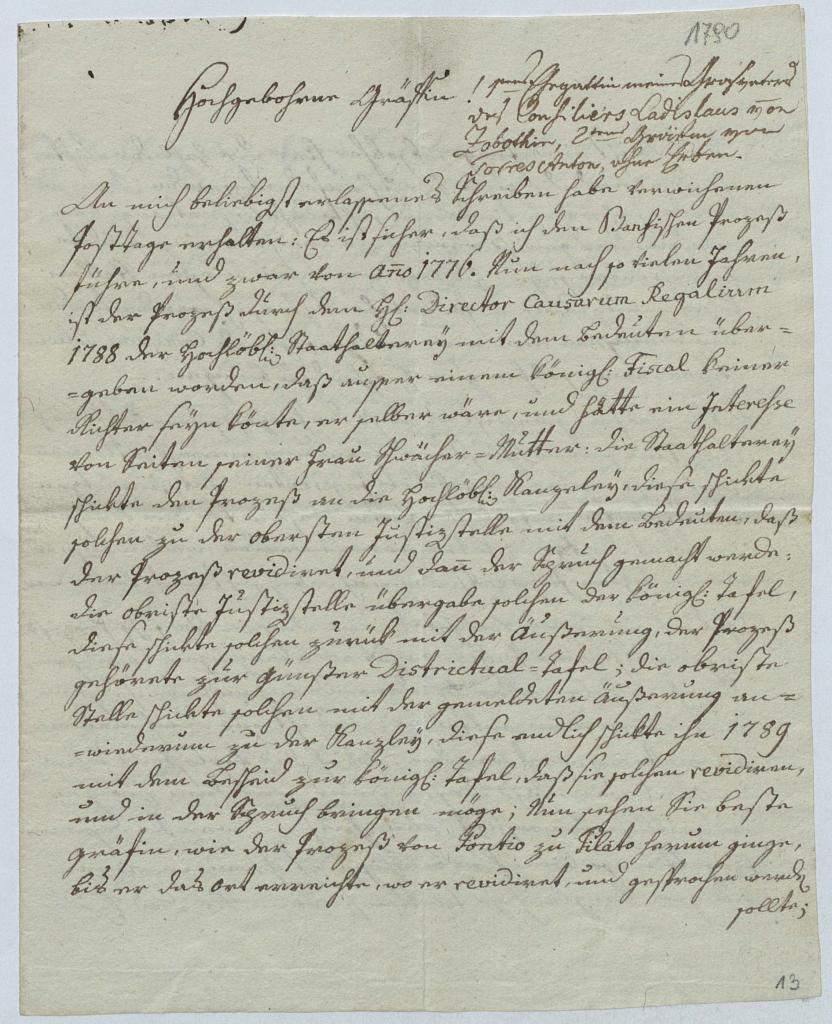 1790
Hochgebohrne Gräfin!
1ten Ehegattin meines Grosvaters
des Consiliers Ladislaus von
Zobothin, 2tens Gräfin von
Torres Anton, ohne Erben.
An mich beliebigst erlassenes Schreiben habe verwichenen
Posttage erhalten: Es ist sicher, daß ich den Banfischen Prozeß
führe, und zwar von Año 1776. Nun nach so vielen Jahren,
ist der Prozeß durch den H: Director Causarum Regalium
1788 der Hochlöbl: Staathalterey mit dem Bedeuten über=
=geben worden, daß ausser einem königl: Fiscal keiner
Richter seyn könte, er selber wäre, und hätte ein Interesse
von Seiten seiner Frau Schwächer=Mutter: die Staathalterey
schickte den Prozeß an die Hochlöbl: Kanzeley, diese schickte
solchen zu der obersten Justizstelle mit dem Bedeuten, daß
der Prozeß revidiret, und dan̄ der Spruch gemacht werde:
die obriste Justizstelle übergabe solchen der königl: Tafel,
diese schickte solchen zurück mit der Äußerung, der Prozeß
gehörete zur Günßer Districtual=Tafel; die obriste
Stelle schickte solchen mit der gemeldeten Äußerung an=
=wiederum zu der Kanzley, diese endlich schickte ihn 1789
mit dem Bescheid zur königl: Tafel, daß sie solchen revidiren,
und in der Spruch bringen möge; Nun sehen Sie beste
Gräfin, wie der Prozeß von Pontio zu Pilato herum ginge,
bis er das Ort erreichte, wo er revidiret, und gesprochen werden
sollte;
13